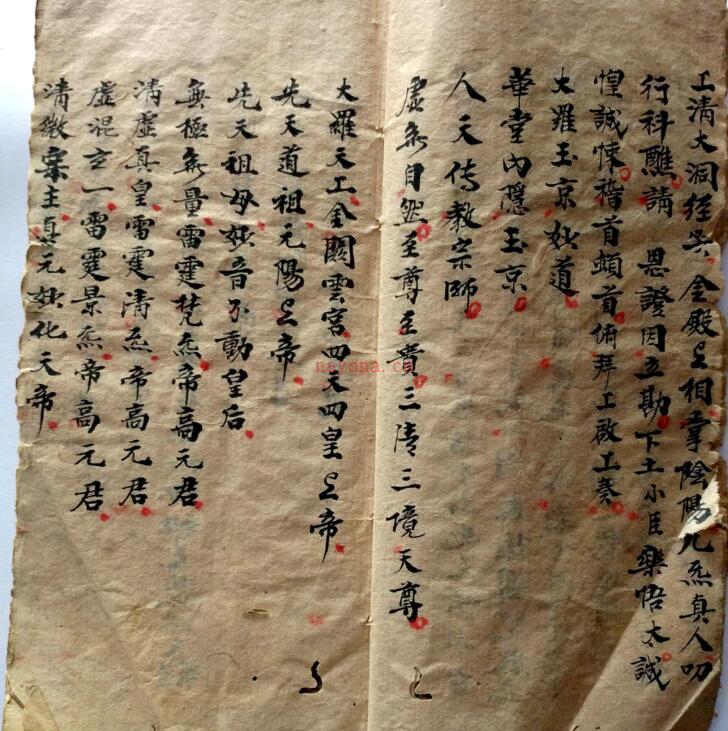 上清大洞經籙金殿上相掌陰陽九炁真人叩
行科醮請 恩證因立勘下土小臣樂悟太誠
惶誠悚稽首頓首俯拜上啟上奏
大羅玉京妙道
華堂內隱玉京
人天傳教宗師
虛無自然至尊至貴三清三境天尊
大羅天上金闕雲宮四天四皇上帝
先天道祖元陽上帝
先天祖母妙音不動皇后
無極無量雷霆梵炁帝高元君
清虛真皇雷霆清炁帝高元君
虛混玄一雷霆景炁帝高元君
清微宗主真元妙化天帝
nayona.cn